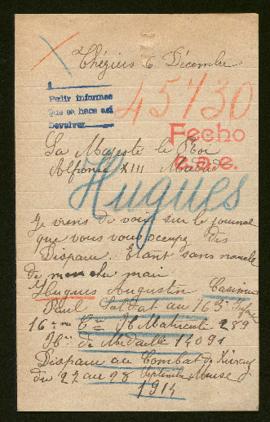 Théziers 6 Décembre
Pedir informes
que se hace así
Devolver
45730
Fecho
Sa Majesté le Roi
Alfonse XIII Madrid
Hugues
Je viens de voir sur le journal
que vous vous occupez des
Disparu. Étant sans nouvelle
de mon mari
Hugues Augustin Casimir
Paul Soldat au 163e
16me Cie Nº Matricule 289
Nº de Médaille 14091
Disparu au Combat de Xivray
du 22 au 28 Septembre Meuse
1914